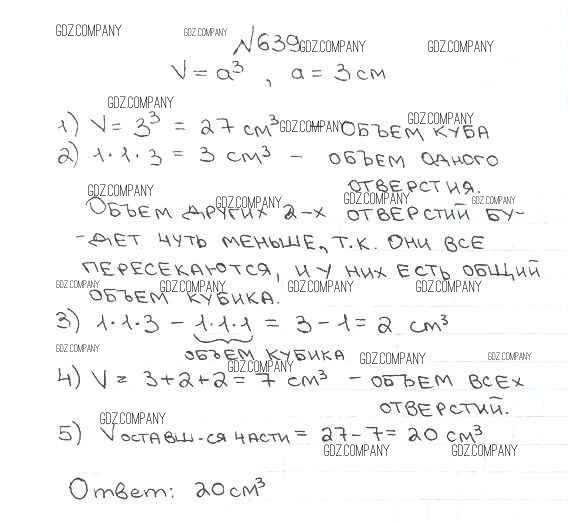 GDZ.COMPANY GDZ.COMPANY
№639 GDZ.COMPANY GDZ.COMPANY
V = a³ , a = 3 см
GDZ.COMPANY
1) V = 3³ = 27 см³ GDZ.COMPANY – ОБЪЕМ КУБА GDZ.COMPANY
2) 1·1·3 = 3 см³ – ОБЪЕМ ОДНОГО
GDZ.COMPANY ОТВЕРСТИЯ.
GDZ.COMPANY GDZ.COMPANY GDZ.COMPANY
ОБЪЕМ ДРУГИХ 2-х ОТВЕРСТИЙ БУ-
-ДЕТ ЧУТЬ МЕНЬШЕ, Т.К. ОНИ ВСЕ
ПЕРЕСЕКАЮТСЯ, И У НИХ ЕСТЬ ОБЩИЙ
GDZ.COMPANY GDZ.COMPANY GDZ.COMPANY GDZ.COMPANY
ОБЪЕМ КУБИКА.
3) 1·1·3 – 1·1·1 = 3 – 1 = 2 см³
GDZ.COMPANY ОБЪЕМ КУБИКА GDZ.COMPANY GDZ.COMPANY
GDZ.COMPANY
4) V = 3+2+2 = 7 см³ – ОБЪЕМ ВСЕХ
ОТВЕРСТИЙ.
GDZ.COMPANY
5) V ОСТАВШ-СЯ ЧАСТИ = 27–7 = 20 см³
GDZ.COMPANY GDZ.COMPANY
Ответ: 20 см³